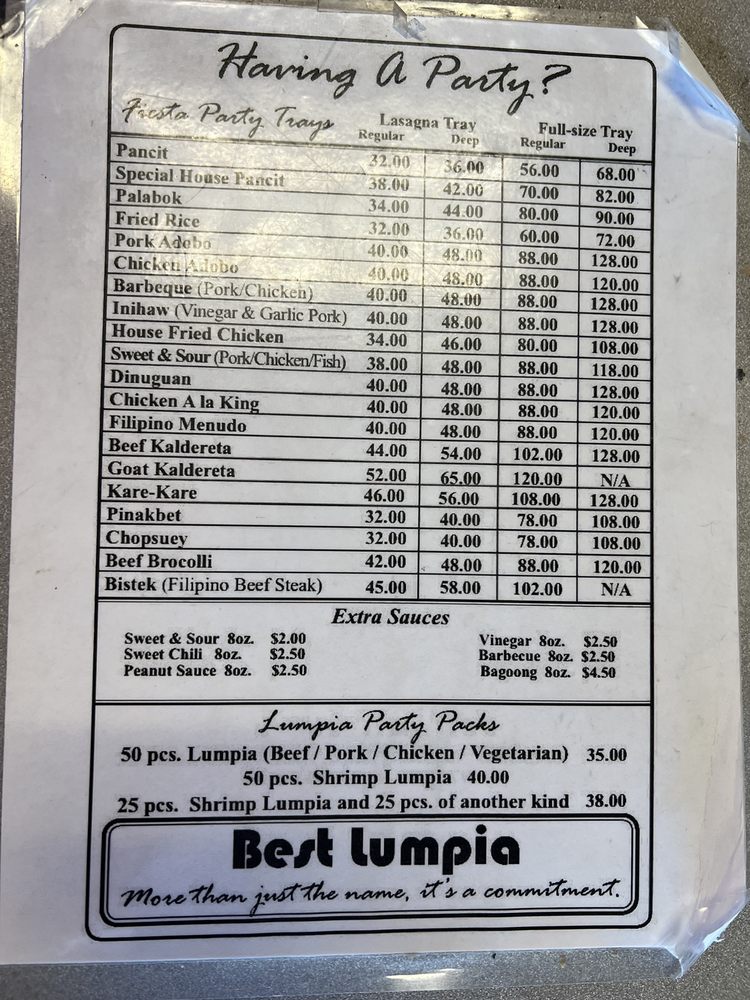 Having A Party?
Fiesta Party Trays Lasagna Tray Full-size Tray
Regular Deep Regular Deep
Pancit 32.00 36.00 56.00 68.00
Special House Pancit 38.00 42.00 70.00 82.00
Palabok 34.00 44.00 80.00 90.00
Fried Rice 32.00 36.00 60.00 72.00
Pork Adobo 40.00 48.00 88.00 128.00
Chicken Adobo 40.00 48.00 88.00 120.00
Barbeque (Pork/Chicken) 40.00 48.00 88.00 128.00
Inihaw (Vinegar & Garlic Pork) 40.00 48.00 88.00 128.00
House Fried Chicken 34.00 46.00 80.00 108.00
Sweet & Sour (Pork/Chicken/Fish) 38.00 48.00 88.00 118.00
Dinuguan 40.00 48.00 88.00 128.00
Chicken A la King 40.00 48.00 88.00 120.00
Filipino Menudo 40.00 48.00 88.00 120.00
Beef Kaldereta 44.00 54.00 102.00 128.00
Goat Kaldereta 52.00 65.00 120.00 N/A
Kare-Kare 46.00 56.00 108.00 128.00
Pinakbet 32.00 40.00 78.00 108.00
Chopsuey 32.00 40.00 78.00 108.00
Beef Brocolli 42.00 48.00 88.00 120.00
Bistek (Filipino Beef Steak) 45.00 58.00 102.00 N/A
Extra Sauces
Sweet & Sour 8oz. $2.00 Vinegar 8oz. $2.50
Sweet Chili 8oz. $2.50 Barbecue 8oz. $2.50
Peanut Sauce 8oz. $2.50 Bagoong 8oz. $4.50
Lumpia Party Packs
50 pcs. Lumpia (Beef / Pork / Chicken / Vegetarian) 35.00
50 pcs. Shrimp Lumpia 40.00
25 pcs. Shrimp Lumpia and 25 pcs. of another kind 38.00
Best Lumpia
More than just the name, it's a commitment.